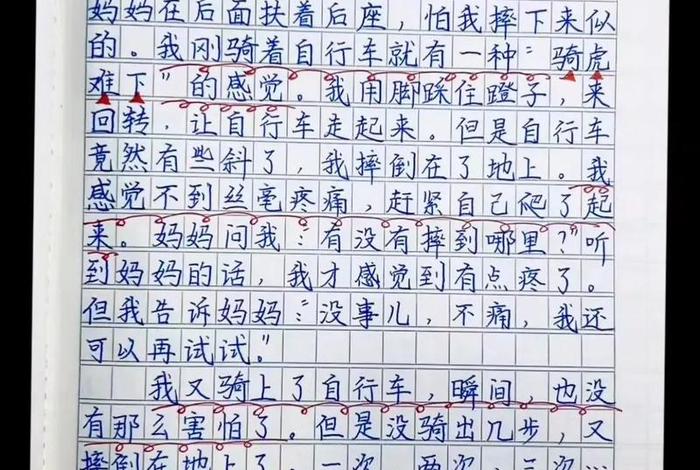 妈妈在后面扶着后座，怕我摔下来似
的。我刚骑着自行车就有一种“骑虎
难下”的感觉。我用脚踩住蹬子，来
回转，让自行车走起来。但是自行车
竟然有些斜了，我摔倒在了地上。我
感觉不到丝毫疼痛，赶紧自己爬了起
来。妈妈问我：“有没有摔到哪里？”听
到妈妈的话，我才感觉到有点疼了。
但我告诉妈妈：“没事儿，不痛，我还
可以再试试。”
我又骑上了自行车，瞬间，也没
有那么害怕了。但是没骑出几步，又
摔倒在地上了。一次，两次，三次…